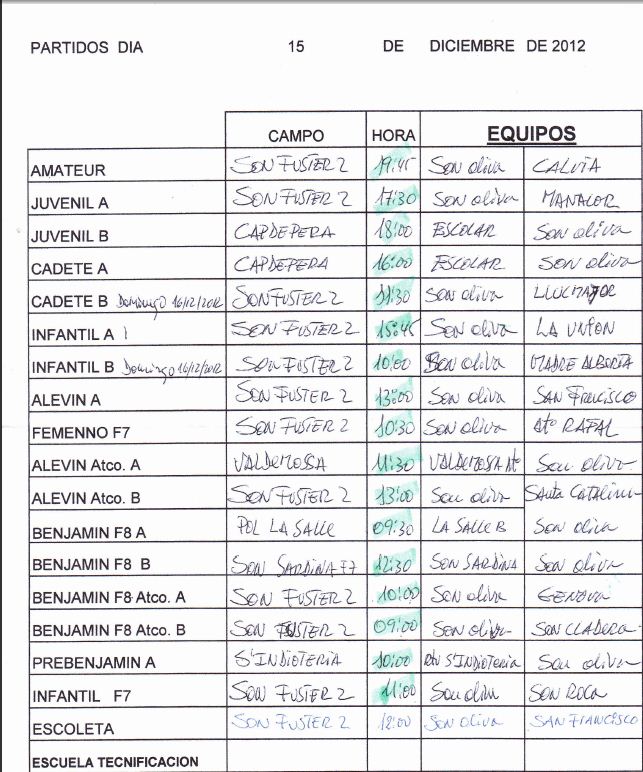 PARTIDOS DIA 15 DE DICIEMBRE DE 2012
CAMPO HORA EQUIPOS
AMATEUR SON FUSTER 2 19:45 Son oliva CALVIA
JUVENIL A SON FUSTER 2 17:30 Son oliva MANACOR
JUVENIL B CAPDEPERA 18:00 ESCOLAR Son oliva
CADETE A CAPDEPERA 16:00 ESCOLAR Son oliva
CADETE B Domingo 16/12/2012 SON FUSTER 2 11:30 Son oliva LLUCMAJOR
INFANTIL A SON FUSTER 2 15:45 Son oliva LA UNION
INFANTIL B Domingo 16/12/2012 SON FUSTER 2 10:00 Son oliva MADRE ALBERTA
ALEVIN A SON FUSTER 2 13:00 Son oliva SAN FRANCISCO
FEMENNO F7 SON FUSTER 2 10:30 Son oliva Atº RAFAL
ALEVIN Atco. A VALDEMOSSA 11:30 VALDEMOSSA Atº Son oliva
ALEVIN Atco. B SON FUSTER 2 13:00 Son oliva Santa CATALINA
BENJAMIN F8 A POL LA SALLE 09:30 LA SALLE B Son oliva
BENJAMIN F8 B SON SARDINA F7 12:30 SON SARDINA Son oliva
BENJAMIN F8 Atco. A SON FUSTER 2 10:00 Son oliva GENOVA
BENJAMIN F8 Atco. B SON FUSTER 2 09:00 Son oliva SON CLADERA
PREBENJAMIN A S'INDIOTERIA 10:00 S'INDIOTERIA Son oliva
INFANTIL F7 SON FUSTER 2 11:00 Son oliva SON ROCA
ESCOLETA SON FUSTER 2 12:00 Son oliva SAN FRANCISCO
ESCUELA TECNIFICACION